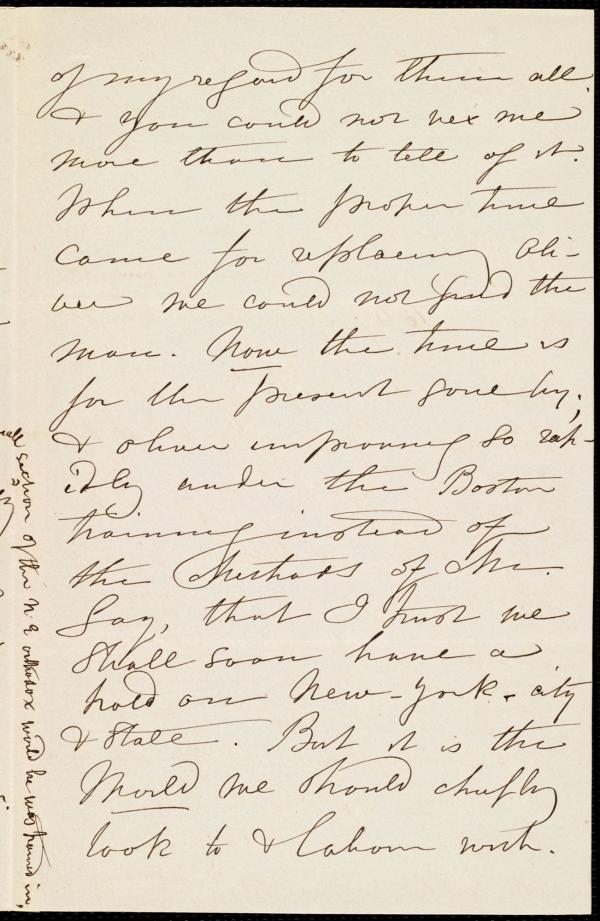 of my regard for them all.
& you could not vex me
more than to tell of it.
When the proper time
came for replacing Oli-
ver we could not find the
man. Now the time is
for the present gone by;
& Oliver improving so rap-
idly under the Boston
training instead of
the Methods of Mr.
Gay, that I trust we
shall soon have a
hold on New-York-city
& State. But it is the
World we should chiefly
look to & labour with.
section of the N. E orthodox world he was trained in,